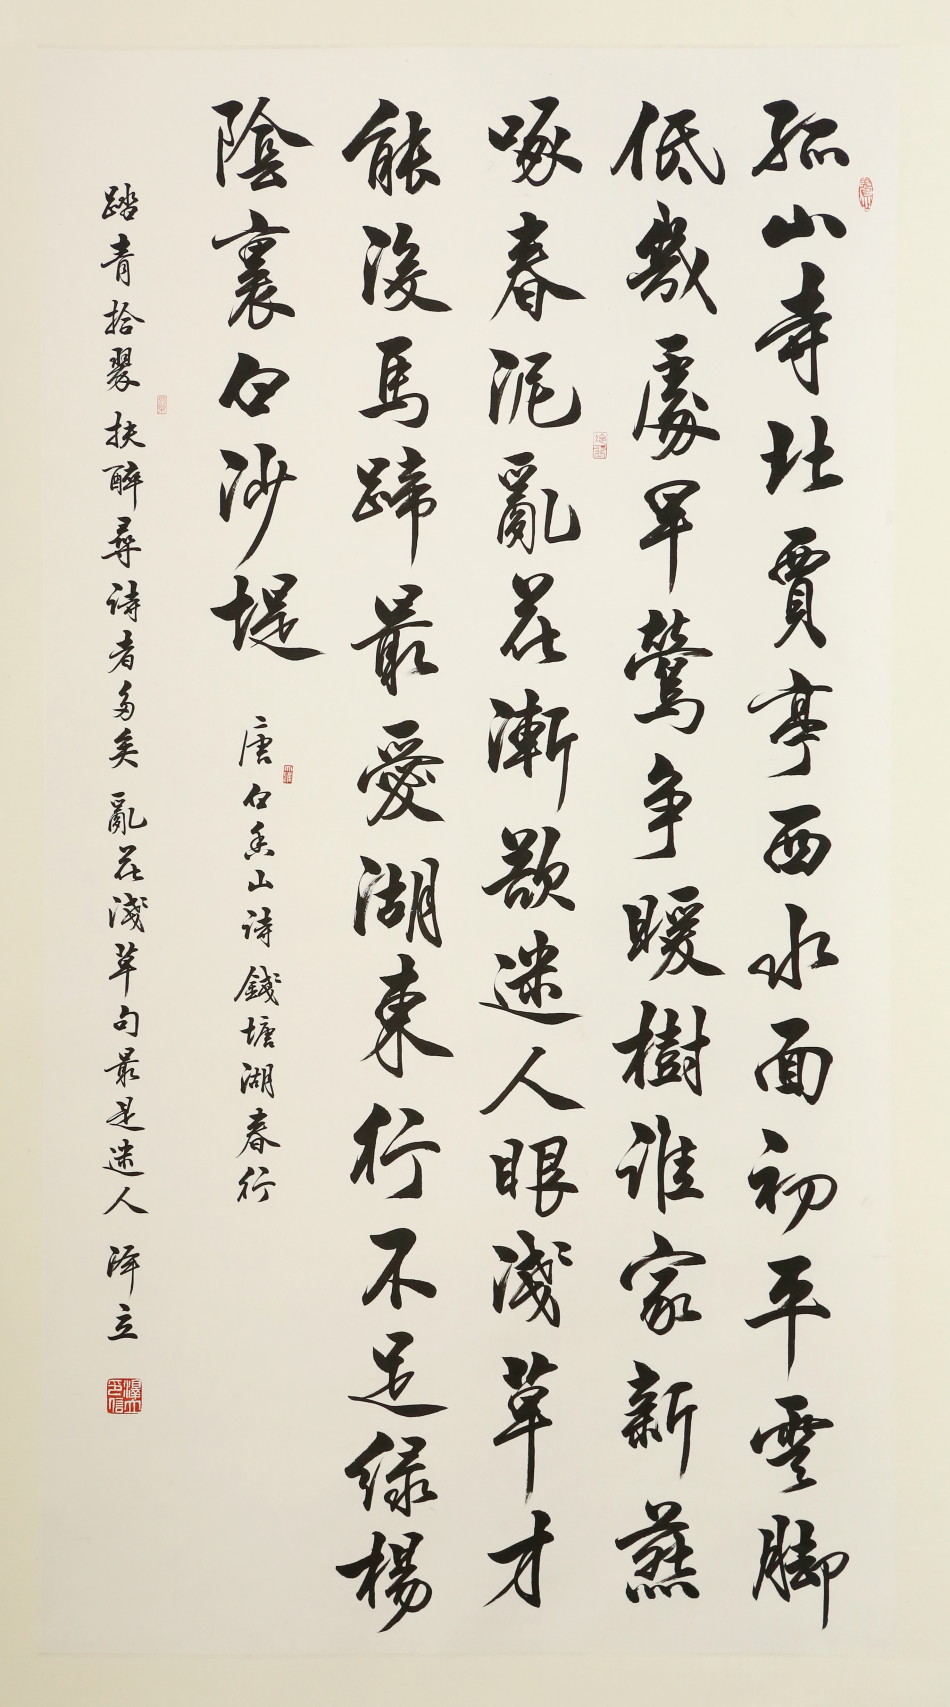 孤山寺北賈亭西水面初平雲脚
低幾處早鶯争暖樹誰家新燕
啄春泥亂花漸欲迷人眼淺草才
能没馬蹄最愛湖東行不足緑楊
陰裏白沙堤
唐白香山詩錢塘湖春行
踏青拾翠扶醉尋詩者多矣亂花淺草句最是迷人 澤立